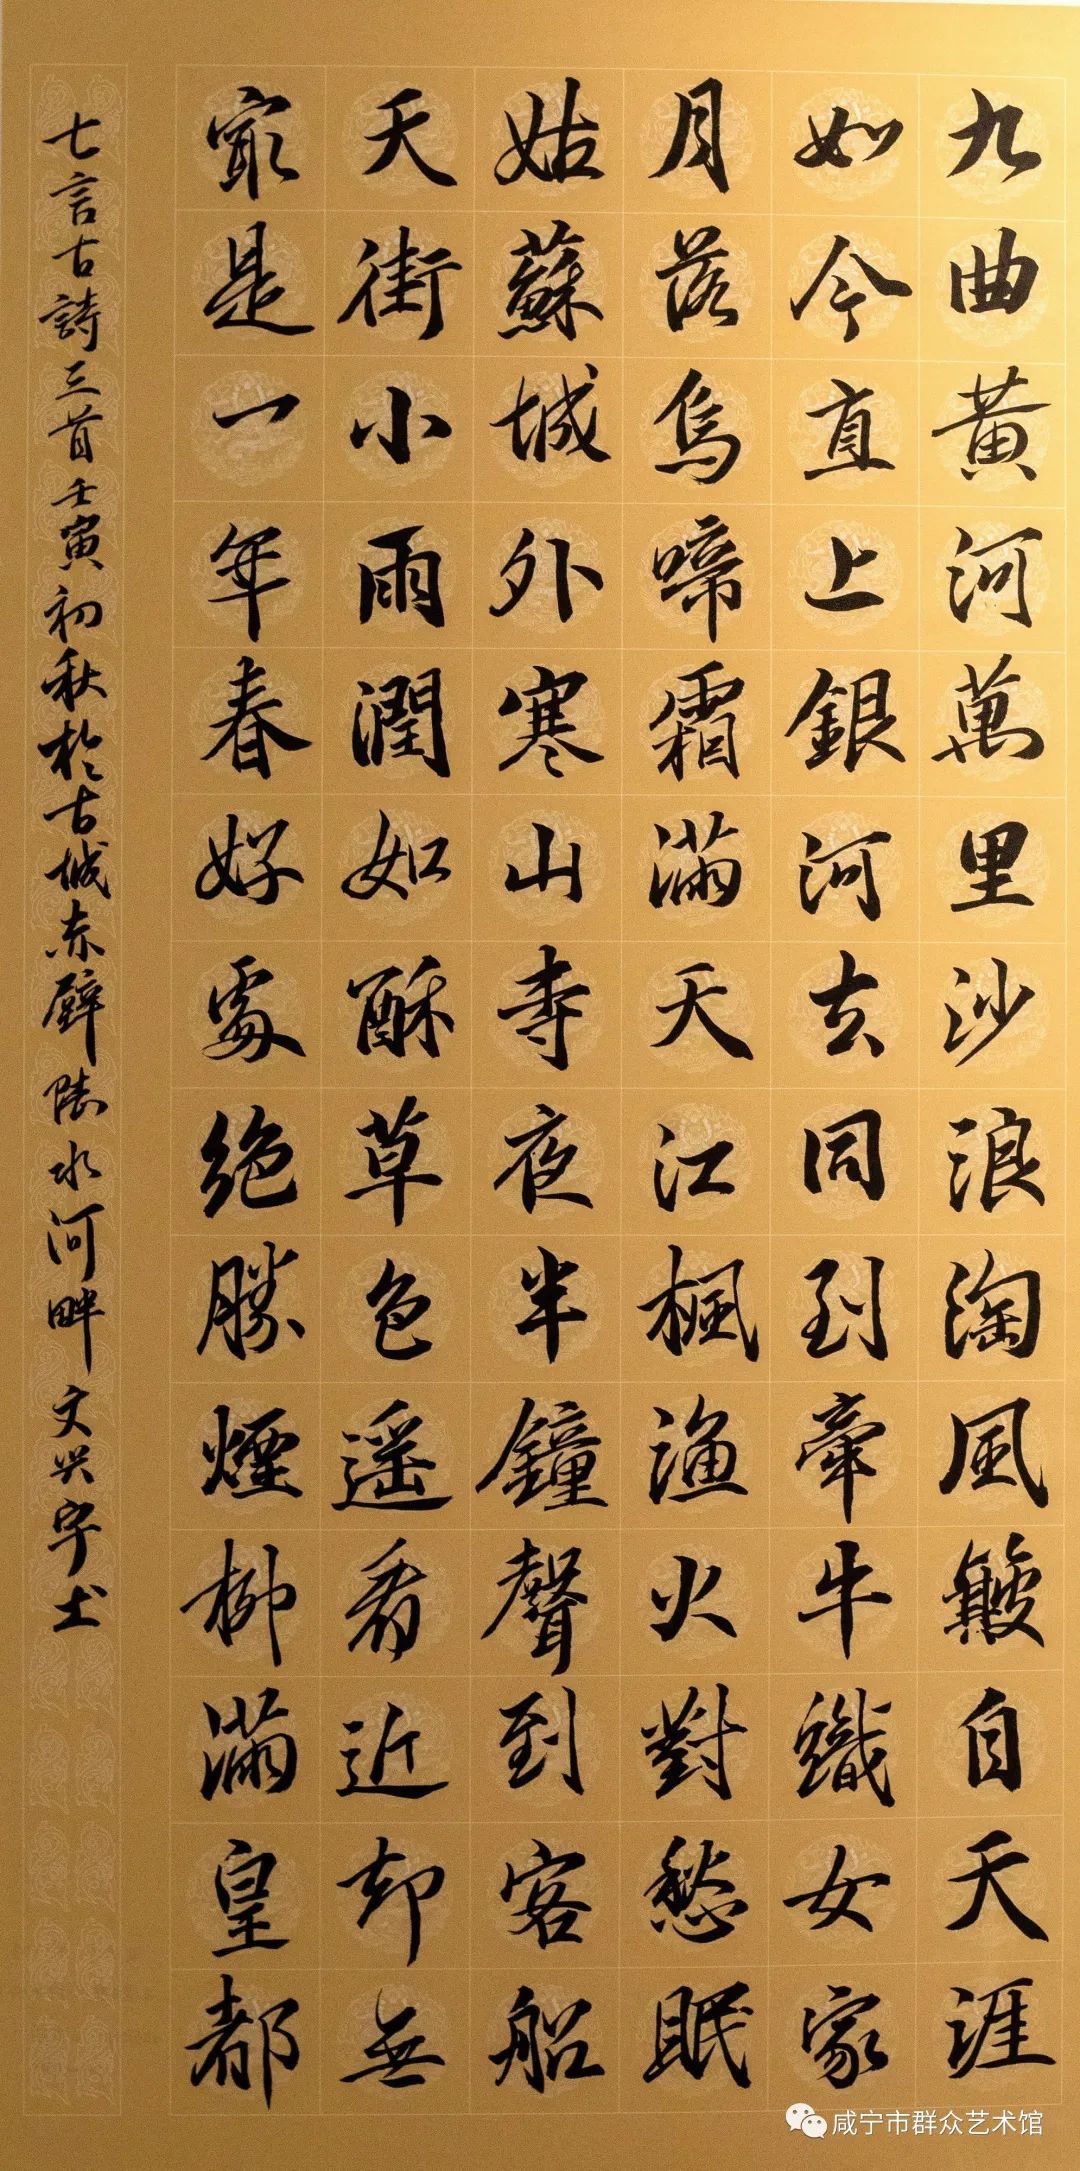 九曲黄河萬里沙浪淘風簸自天涯
如今直上銀河去同到牽牛織女家
月落烏啼霜滿天江楓漁火對愁眠
姑蘇城外寒山寺夜半鐘聲到客船
天街小雨潤如酥草色遥看近却無
最是一年春好處絶勝煙柳滿皇都
七言古詩三首壬寅初秋於古城赤壁陸水河畔文兴字士
咸宁市群众艺术馆